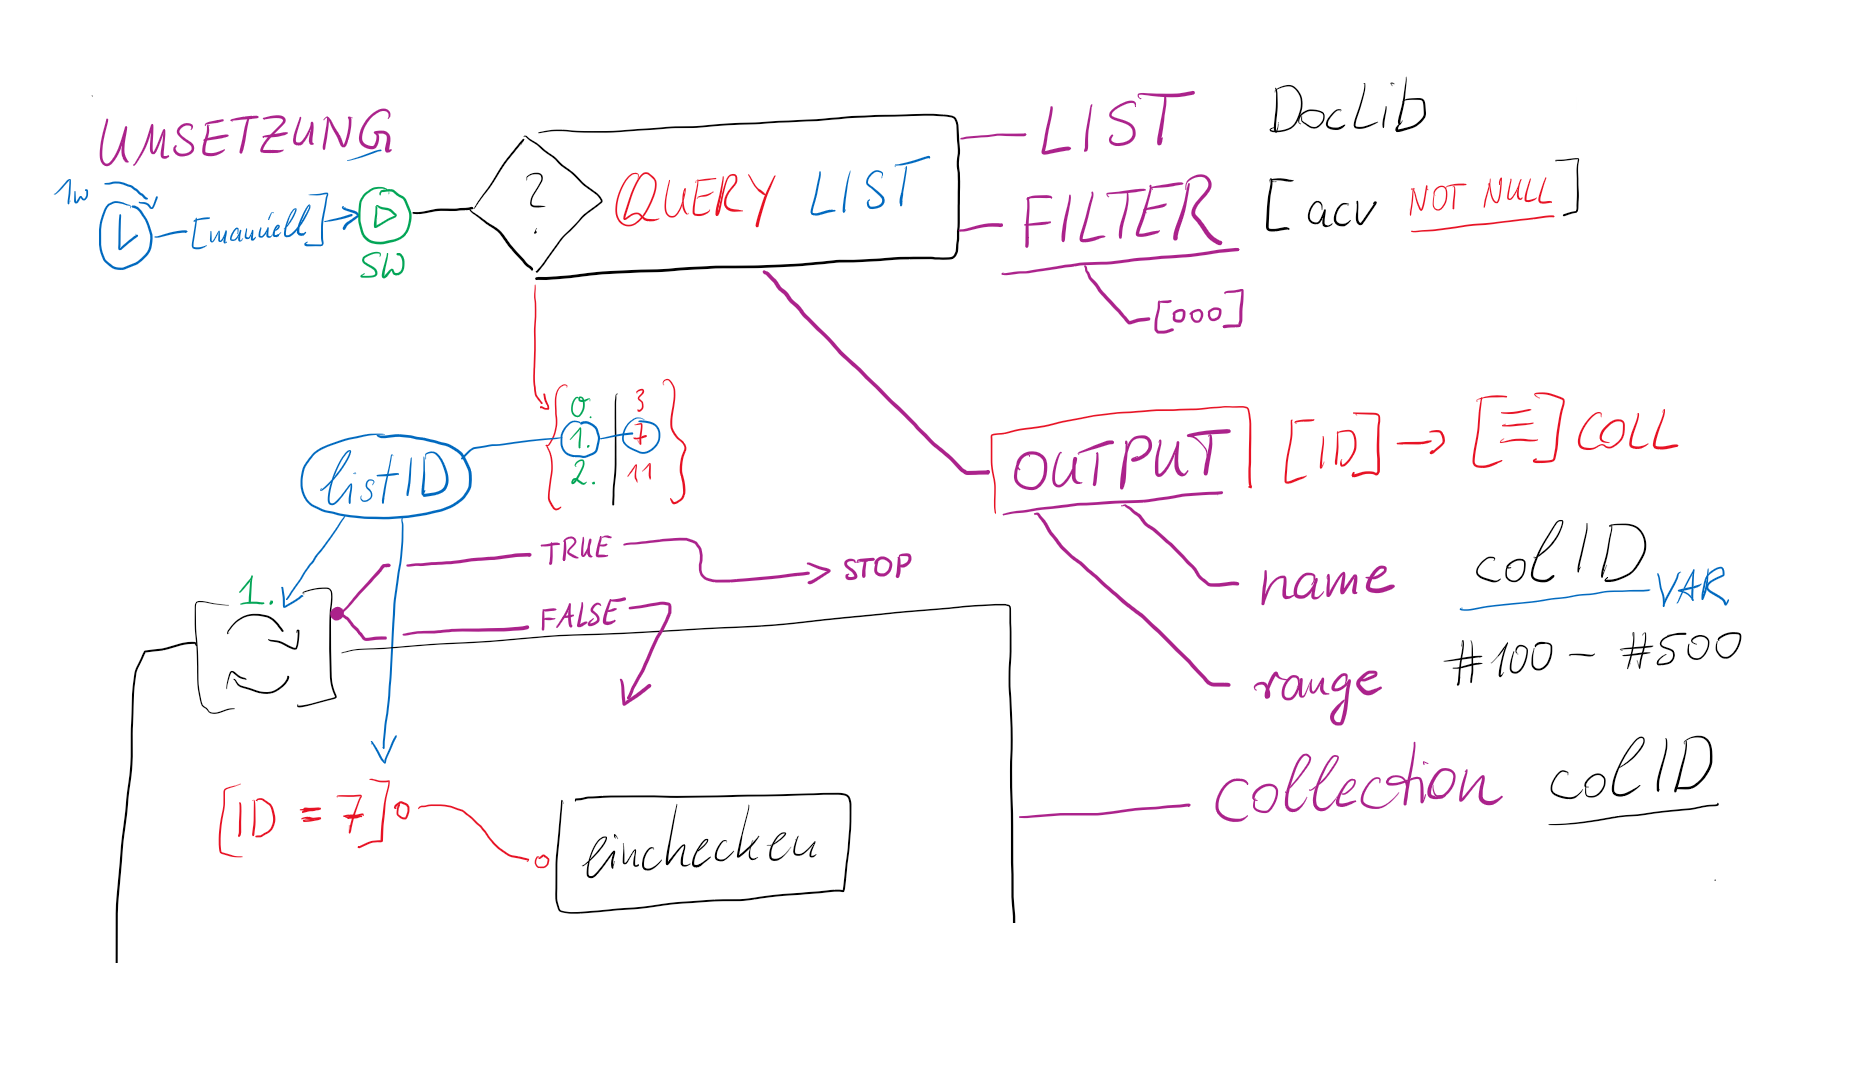 UMSETZUNG
1w
[manuell]
SW
?
QUERY LIST
LIST DocLib
FILTER [acv NOT NULL]
[ooo]
0. 3
1. 7
2. 11
listID
OUTPUT [ID] → [≡] COLL
name colID
VAR
range #100 – #500
TRUE
STOP
FALSE
1.
collection colID
[ID = 7]
einchecken